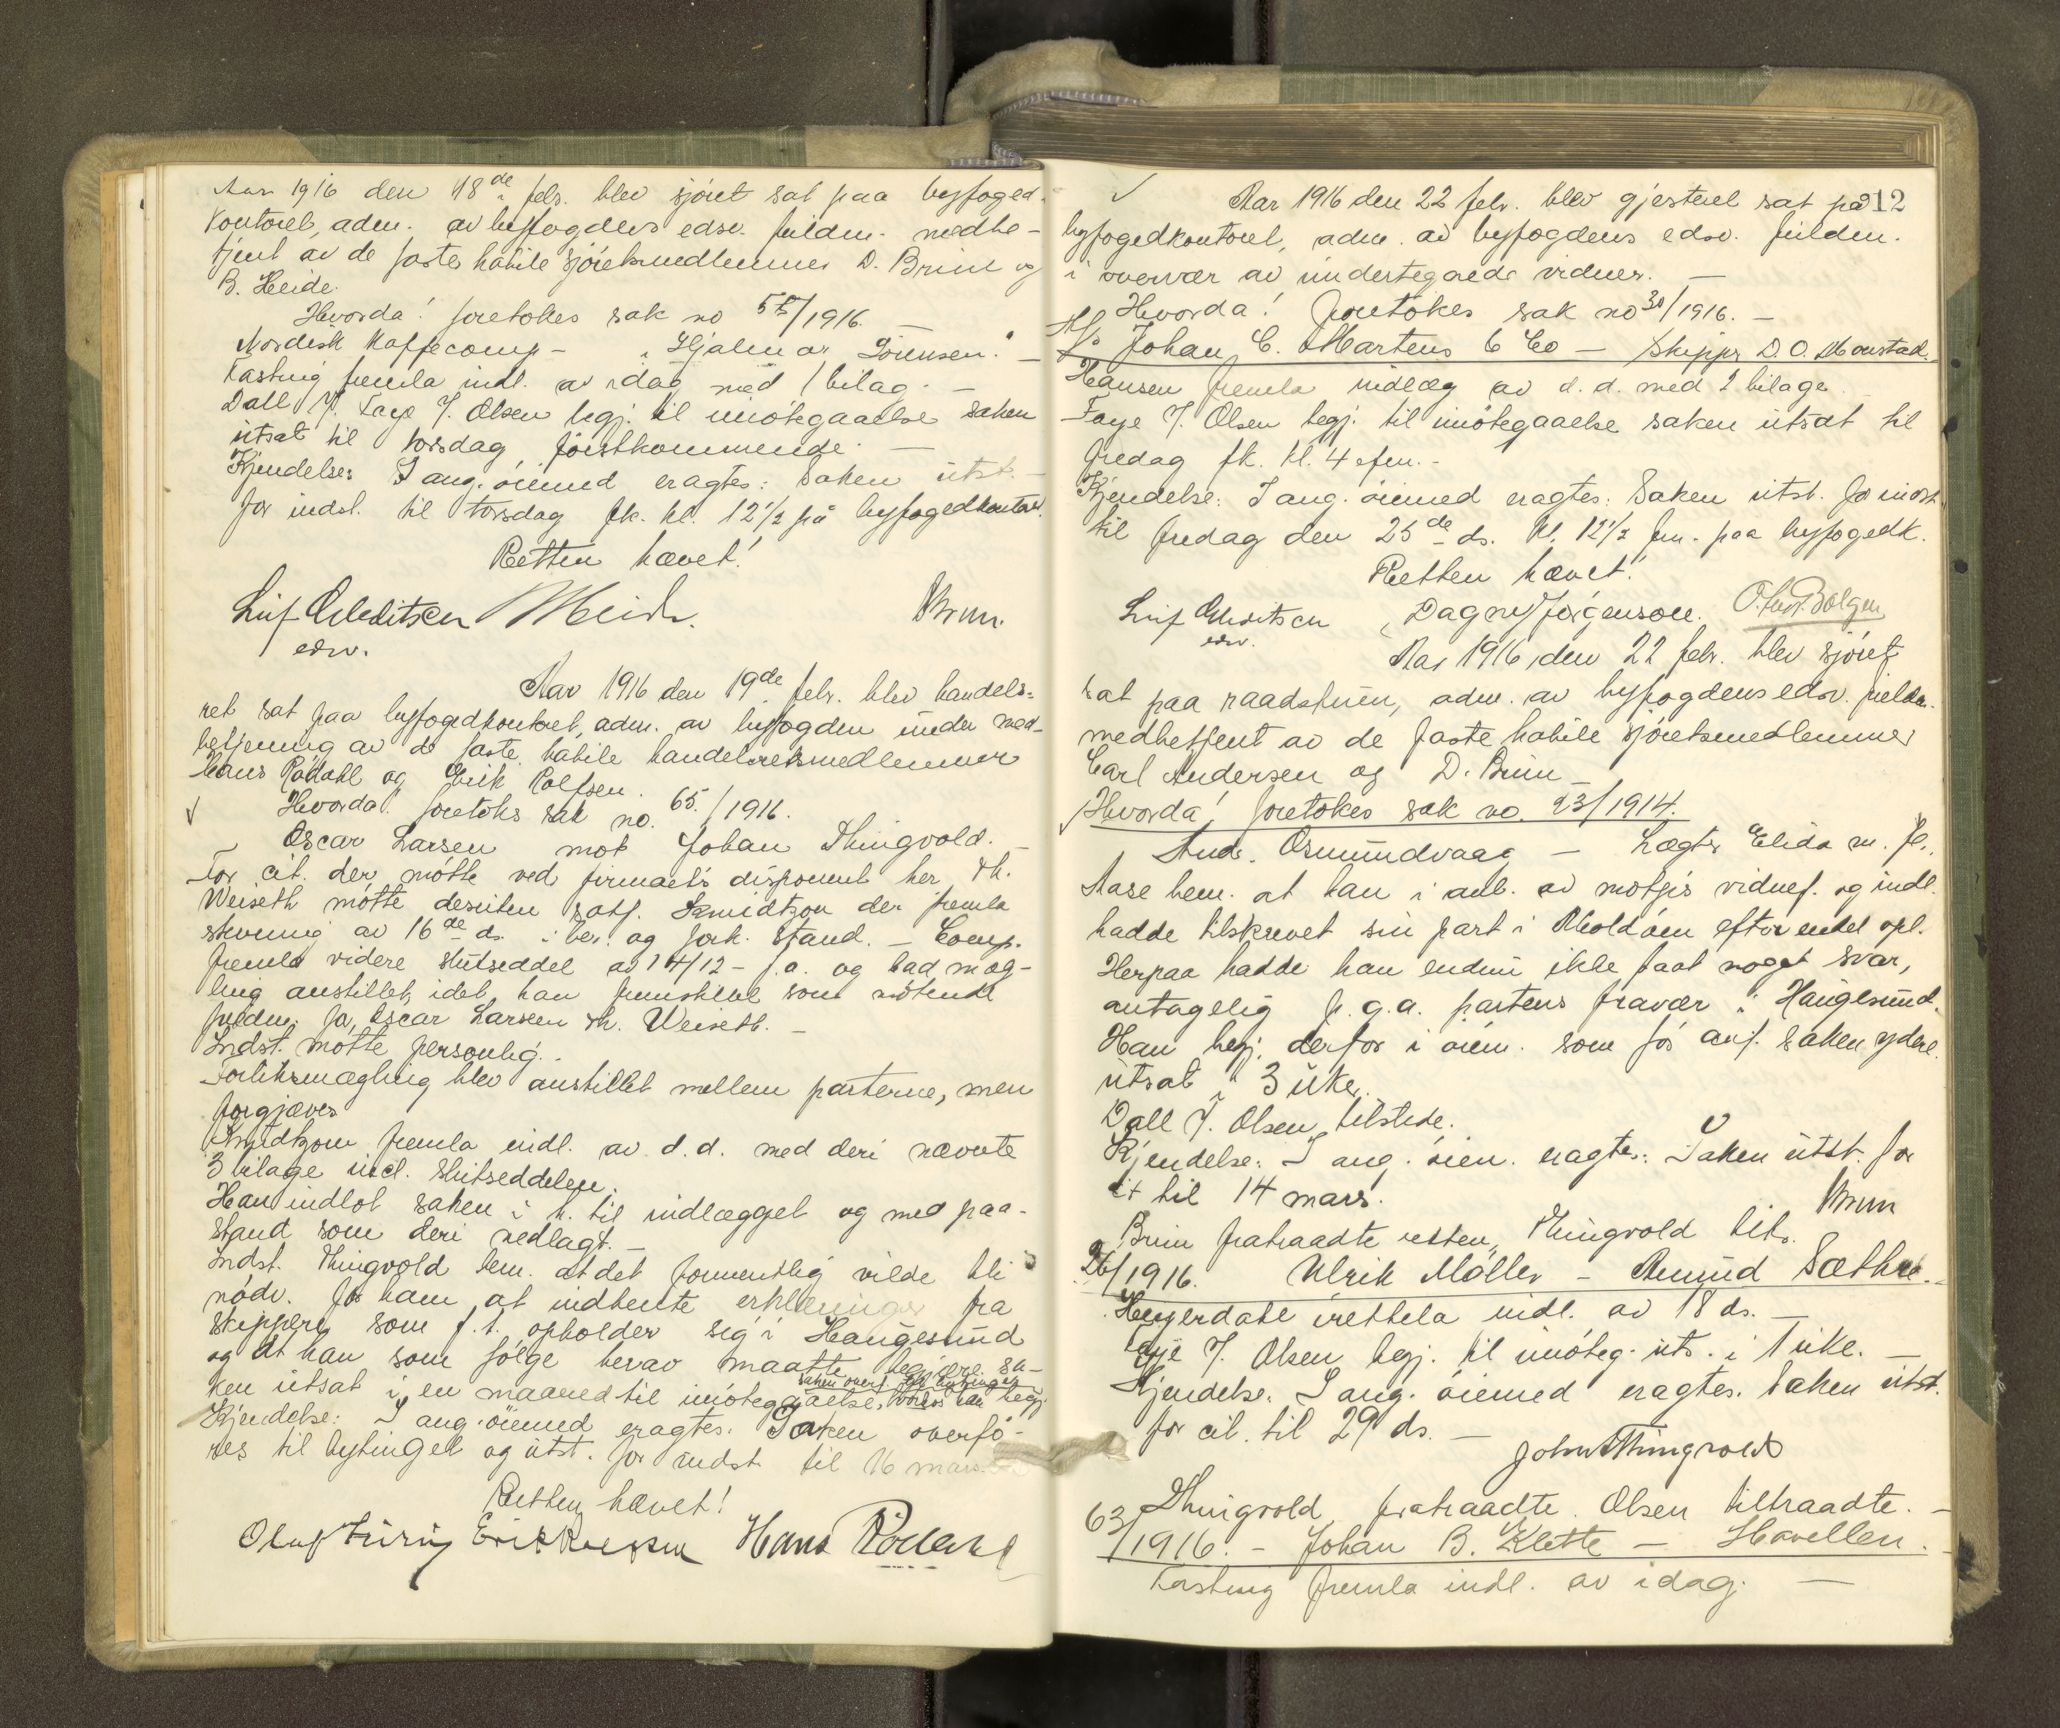 Aar 1916 den 18de febr. blev sjöret sat paa byfoged-
kontoret, adm. av byfogdens edsv. fuldm. medbe-
tjent av de faste habile sjöretsmedlemmer D. Brun og
B. Heide.
Hvorda! foretokes sak no 55/1916. —
Nordisk Kaffecomp – "Hjalmar Sörensen". —
Kastnig fremla indl. av idag med 1 bilag. —
Dall & Faye J. Olsen begj. til imötegaaelse saken
utsat til torsdag förstkommende. —
Kjendelse: I ang. öiemed eragtes: Saken utst. —
for indst. til torsdag fk. kl. 12½ på byfogedkontoret.
Retten hævet!
Leif Gleditsen Heide. Brun.
edsv.
Aar 1916 den 19de febr. blev handels-
ret sat paa byfogedkontoret, adm. av byfogden under med-
betjening av de faste habile handelsretsmedlemmer
Hans Rödahl og Erik Rolfsen.
✓ Hvorda! foretokes sak no. 65/1916.
Oscar Larsen mot Johan Thingvold. —
For cit. der mötte ved firmaets disponent her Th.
Weiseth mötte desuten sakf. Smidtzon der fremla
stevning av 16de ds. i ber. og fork. stand. – Comp.
fremla videre slutseddel av 14/12 – f.a. og bad mæg-
ling anstillet, idet han fremstillet som mötende
fuldm. for Oscar Larsen Th. Weiseth. —
Indst. mötte personlig. .
Forliksmægling blev anstillet mellem parterne, men
forgjæves
Smidtzon fremla indl. av d.d. med deri nævnte
3 bilage incl. slutseddelen.
Han indlot saken i h. til indlægget og med paa-
stand som deri nedlagt. —
Indst. Thingvold bem. at det formentlig vilde bli
nödv. for ham at indhente erklæringer fra
skippere som f.t. opholder sig i Haugesund
og at han som fölge herav maatte begjære sa-
ken utsat i en maaned til imötegaaelse, hvorhos han begj.
saken overf. til bytinget
Kjendelse: I ang. öiemed eragtes: Saken overfö-
res til bytinget og utst. for indst til 16 mars
Retten hævet!
Olaf Erik Rolfsen Hans Rödahl
12
✓ Aar 1916 den 22 febr. blev gjesteret sat på
byfogedkontoret, adm. av byfogdens edsv. fuldm.
i overvær av undertegnede vidner. —
Hvorda! foretokes sak no 30/1916. —
A/S Johan C. Martens & Co — Skipper D.O. Monstad.
Hansen fremla indlæg av d.d. med 2 bilage.
Faye J. Olsen begj. til imötegaaelse saken utsat til
fredag fk. kl. 4 efm. –
Kjendelse: I ang. öiemed eragtes: Saken utst. for indst.
til fredag den 25de ds. kl. 12½ fm. paa byfogedk.
Retten hævet!
Leif Gleditsen Dagny Jörgensen.
edsv.
Aar 1916, den 22 febr. blev sjöret
sat paa raadstuen, adm. av byfogdens edsv. fuldm.
medbetjent av de faste habile sjöretsmedlemmer
Carl Andersen og D. Brun —
✓ Hvorda! foretokes sak no. 23/1914.
Andr. Osmundvaag — Lægter Elida m. fl.
Aase bem. at han i anl. av motp's vidnef. og indl.
hadde tilskrevet sin part i Moldöen efter endel opl.
Herpaa hadde han endnu ikke faat noget svar,
antagelig p.g.a. partens fravær i Haugesund.
Han begj. derfor i öiem. som för anf. saken yderl.
utsat i 3 uker.
Dall J. Olsen tilstede.
Kjendelse: I ang. öien. eragtes: Saken utst. for
cit til 14 mars.
Brun
Brun fratraadte retten, Thingvold tilst.
26/1916. Ulrik Möller — Amund Sæthre.
Heyerdahl irettela indl. av 18 ds. —
Faye J. Olsen begj. til imöteg. uts. i 1 uke. —
Kjendelse: I ang. öiemed eragtes: Saken utst.
for cit. til 29 ds. —
Johan Thingvold
Thingvold fratraadte. Olsen tiltraadte. —
63/1916. – Johan B. Klette — Havellen.
Kastnig fremla indl. av idag. —